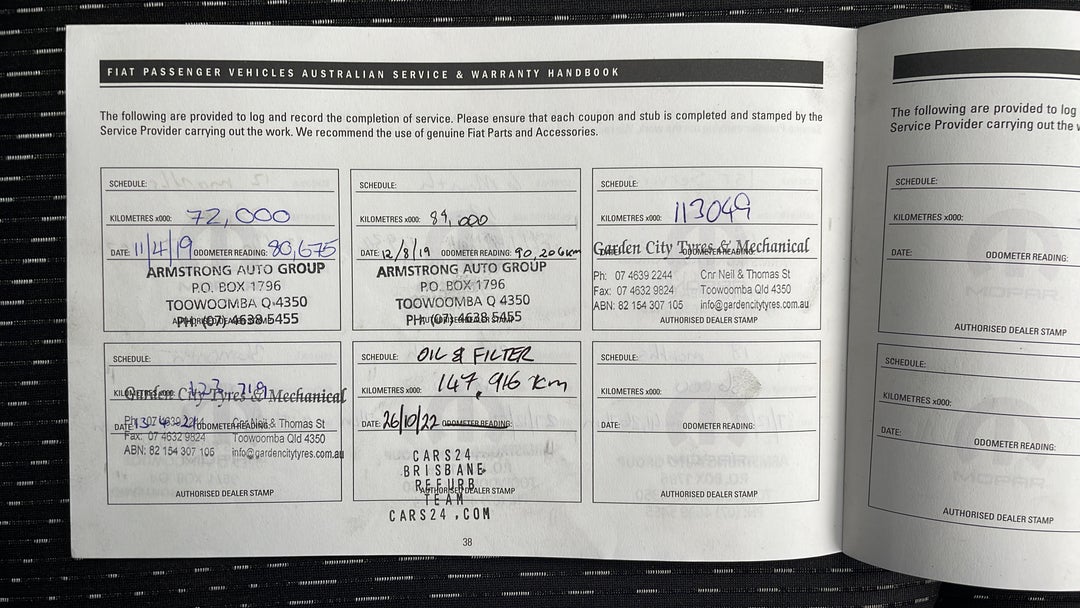 FIAT PASSENGER VEHICLES AUSTRALIAN SERVICE & WARRANTY HANDBOOK
The following are provided to log and record the completion of service. Please ensure that each coupon and stub is completed and stamped by the
Service Provider carrying out the work. We recommend the use of genuine Fiat Parts and Accessories.
SCHEDULE:
KILOMETRES x000: 72,000
DATE: 11/4/19 ODOMETER READING: 80,675
ARMSTRONG AUTO GROUP
P.O. BOX 1796
TOOWOOMBA Q 4350
PH: (07) 4638 5455
AUTHORISED DEALER STAMP
SCHEDULE:
KILOMETRES x000: 84,000
DATE: 12/8/19 ODOMETER READING: 90,206km
ARMSTRONG AUTO GROUP
P.O. BOX 1796
TOOWOOMBA Q 4350
PH: (07) 4638 5455
AUTHORISED DEALER STAMP
SCHEDULE:
KILOMETRES x000: 113049
DATE: ODOMETER READING:
Garden City Tyres & Mechanical
Ph: 07 4639 2244 Cnr Neil & Thomas St
Fax: 07 4632 9824 Toowoomba Qld 4350
ABN: 82 154 307 105 info@gardencitytyres.com.au
AUTHORISED DEALER STAMP
SCHEDULE:
KILOMETRES x000: 123 719
Garden City Tyres & Mechanical
DATE: 13-4-21 ODOMETER READING:
Ph: 07 4639 2244 Cnr Neil & Thomas St
Fax: 07 4632 9824 Toowoomba Qld 4350
ABN: 82 154 307 105 info@gardencitytyres.com.au
AUTHORISED DEALER STAMP
SCHEDULE: OIL & FILTER
KILOMETRES x000: 147,916 km
DATE: 26/10/22 ODOMETER READING:
CARS24
BRISBANE
REFURB
AUTHORISED DEALER STAMP
TEAM
CARS24.COM
SCHEDULE:
KILOMETRES x000:
DATE: ODOMETER READING:
AUTHORISED DEALER STAMP
38
The following are provided to log
Service Provider carrying out the
SCHEDULE:
KILOMETRES x000:
DATE: ODOMETER READING:
MOPAR
AUTHORISED DEALER STAMP
SCHEDULE:
KILOMETRES x000:
DATE: ODOMETER READING:
MOPAR
AUTHORISED DEALER STAMP